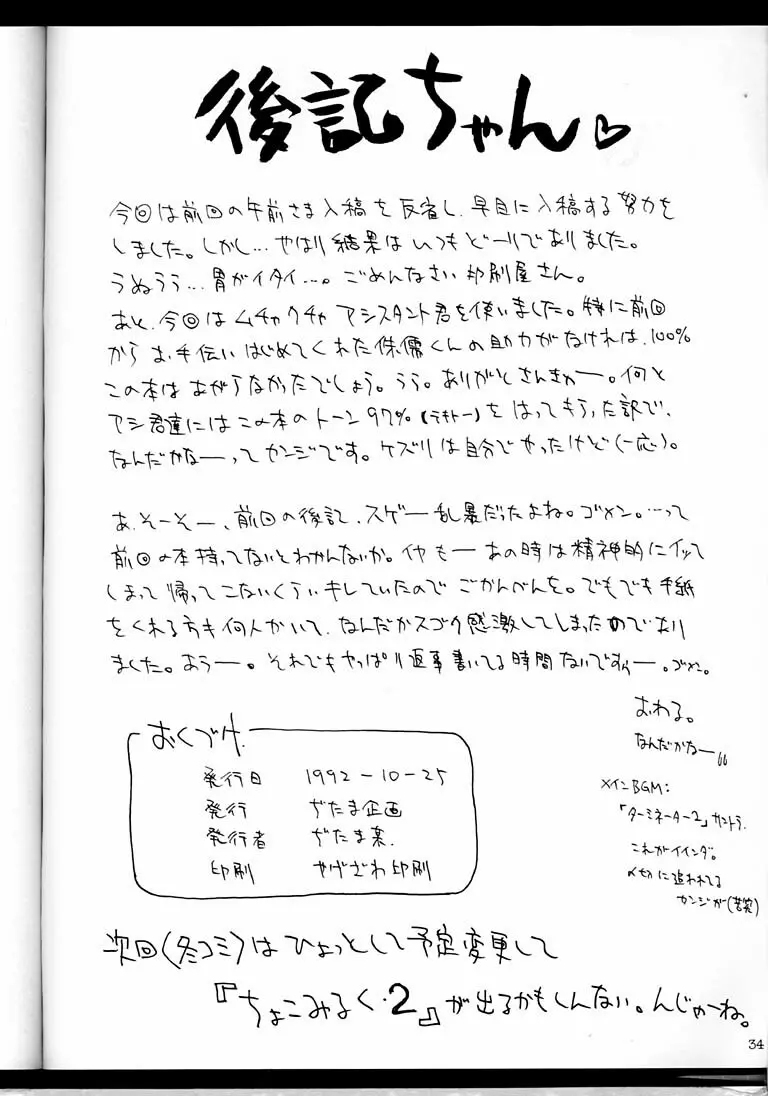 後記ちゃん♡
今回は前回の午前さま入稿を反省し、早目に入稿する努力を
しました。しかし…やはり結果はいつもどーりでありました。
うぬうう…胃がイタイ…。ごめんなさい印刷屋さん。
あと、今回はムチャクチャアシスタント君を使いました。特に前回
からお手伝いはじめてくれた侏儒くんの助力がなければ、100%
この本はあがらなかったでしょう。うう。ありがとさんきゅー。何と
アシ君達にはこの本のトーン97%(テキトー)をはってもらった訳で、
なんだかなーってカンジです。ケズリは自分でやったけど(一応)。
あ、そーそー、前回の後記、スゲー乱暴だったよね。ゴメン。…って
前回の本持ってないとわかんないか。イヤもーあの時は精神的にイッて
しまって帰ってこないくらいキレていたのでごかんべんを。でもでも手紙
をくれる方も何人かいて、なんだかスゴク感激してしまったのであり
ました。おうー。それでもやっぱり返事書いてる時間ないですぅー。ゴメン。
おわる。
なんだかなー
メインBGM:
「ターミネーター2」サントラ
これがイインダ。
〆切に追われてる
カンジが(苦笑)
おくづけ
発行日 1992-10-25
発行 ぢたま企画
発行者 ぢたま某.
印刷 やげざわ印刷
次回(冬コミ)はひょっとして予定変更して
『ちょこみるく・2』が出るかもしんない。んじゃーね。
34